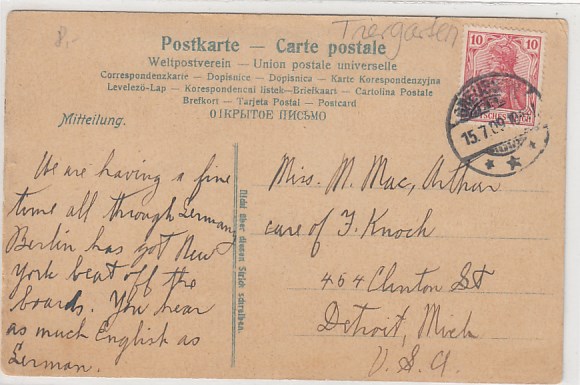 8,-
Tiergarten
Postkarte — Carte postale
Weltpostverein — Union postale universelle
Correspondenzkarte — Dopisnice — Dopisnica — Karte Korespondenzyjna
Levelező-Lap — Korespondencni listek — Briefkaart — Cartolina Postale
Brefkort — Tarjeta Postal — Postcard
ОТКРЫТОЕ ПИСЬМО
10 10
DEUTSCHES REICH
15.7.09
Mitteilung.
We are having a fine
time all through Germany
Berlin has got New
York beat off the
boards. You hear
as much English as
German.
Nicht über diesen Strich schreiben.
Miss. M. Mac, Arthur
care of F. Knoch
464 Clinton St
Detroit, Mich
U.S.A.